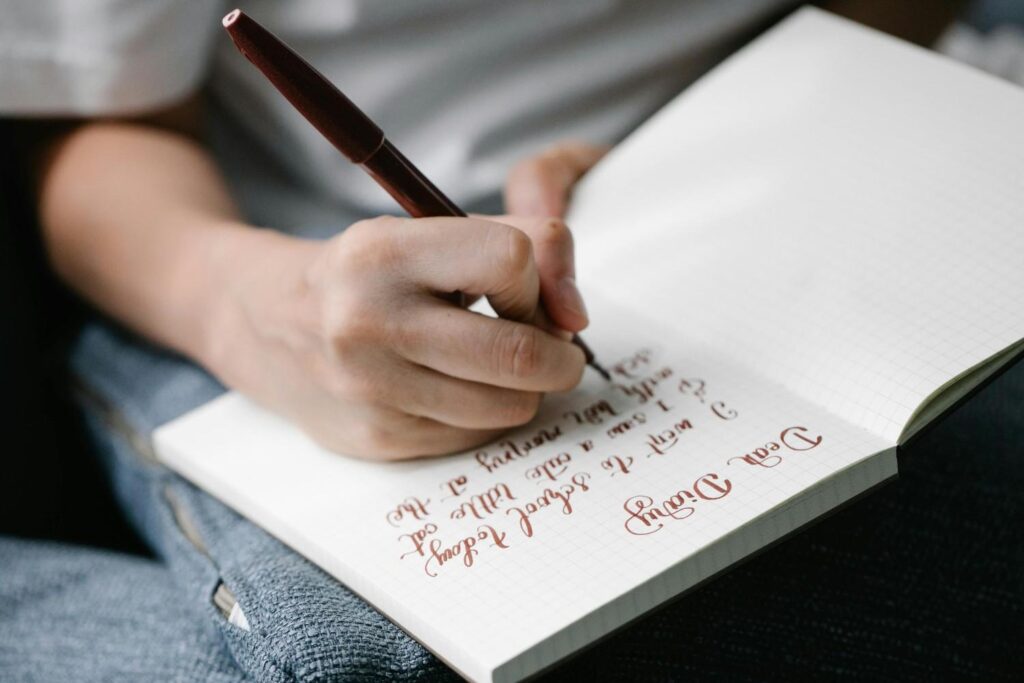 Dear Diary
I went to school today
& I saw a cute little cat
mommy at the